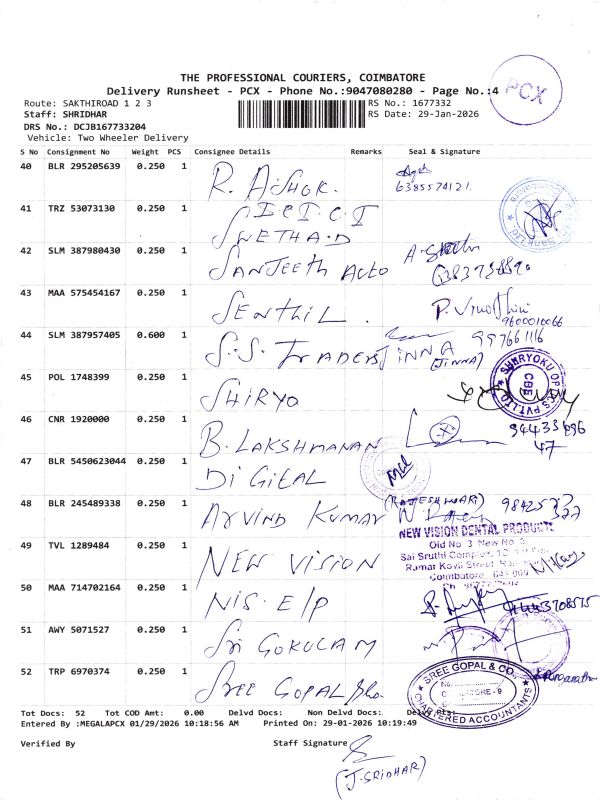 THE PROFESSIONAL COURIERS, COIMBATORE
Delivery Runsheet - PCX - Phone No.:9047080280 - Page No.:4
PCX
Route: SAKTHIROAD 1 2 3
RS No.: 1677332
Staff: SHRIDHAR
RS Date: 29-Jan-2026
DRS No.: DCJB167733204
Vehicle: Two Wheeler Delivery
S No Consignment No Weight PCS Consignee Details Remarks Seal & Signature
40 BLR 295205639 0.250 1 R. ASHOK.
6385574121.
41 TRZ 53073130 0.250 1 I C I C I
SWETHA.D
42 SLM 387980430 0.250 1 SANJEETH Auto
43 MAA 575454167 0.250 1 SENTHIL.
9600010066
44 SLM 387957405 0.600 1 S.S. TRADERS JINNA
(JINNA)
997661116
45 POL 1748399 0.250 1 SHIRYO
CBE
46 CNR 1920000 0.250 1 B. LAKSHMANAN
47
47 BLR 5450623044 0.250 1 DIGITAL
48 BLR 245489338 0.250 1 ARVIND KUMAR
(RAJESHWARI)
49 TVL 1289484 0.250 1 NEW VISION
NEW VISION DENTAL PRODUCTS
Old No. 3 New No.
Sai Sruthi Complex,
Coimbatore
50 MAA 714702164 0.250 1 NIS. E/P
51 AWY 5071527 0.250 1 Sri GOKULAM
52 TRP 6970374 0.250 1 SREE GOPAL
SREE GOPAL & CO.
CHARTERED ACCOUNTANTS
Tot Docs: 52 Tot COD Amt: 0.00 Delvd Docs: Non Delvd Docs:
Entered By :MEGALAPCX 01/29/2026 10:18:56 AM Printed On: 29-01-2026 10:19:49
Verified By Staff Signature
(J.SRIDHAR)